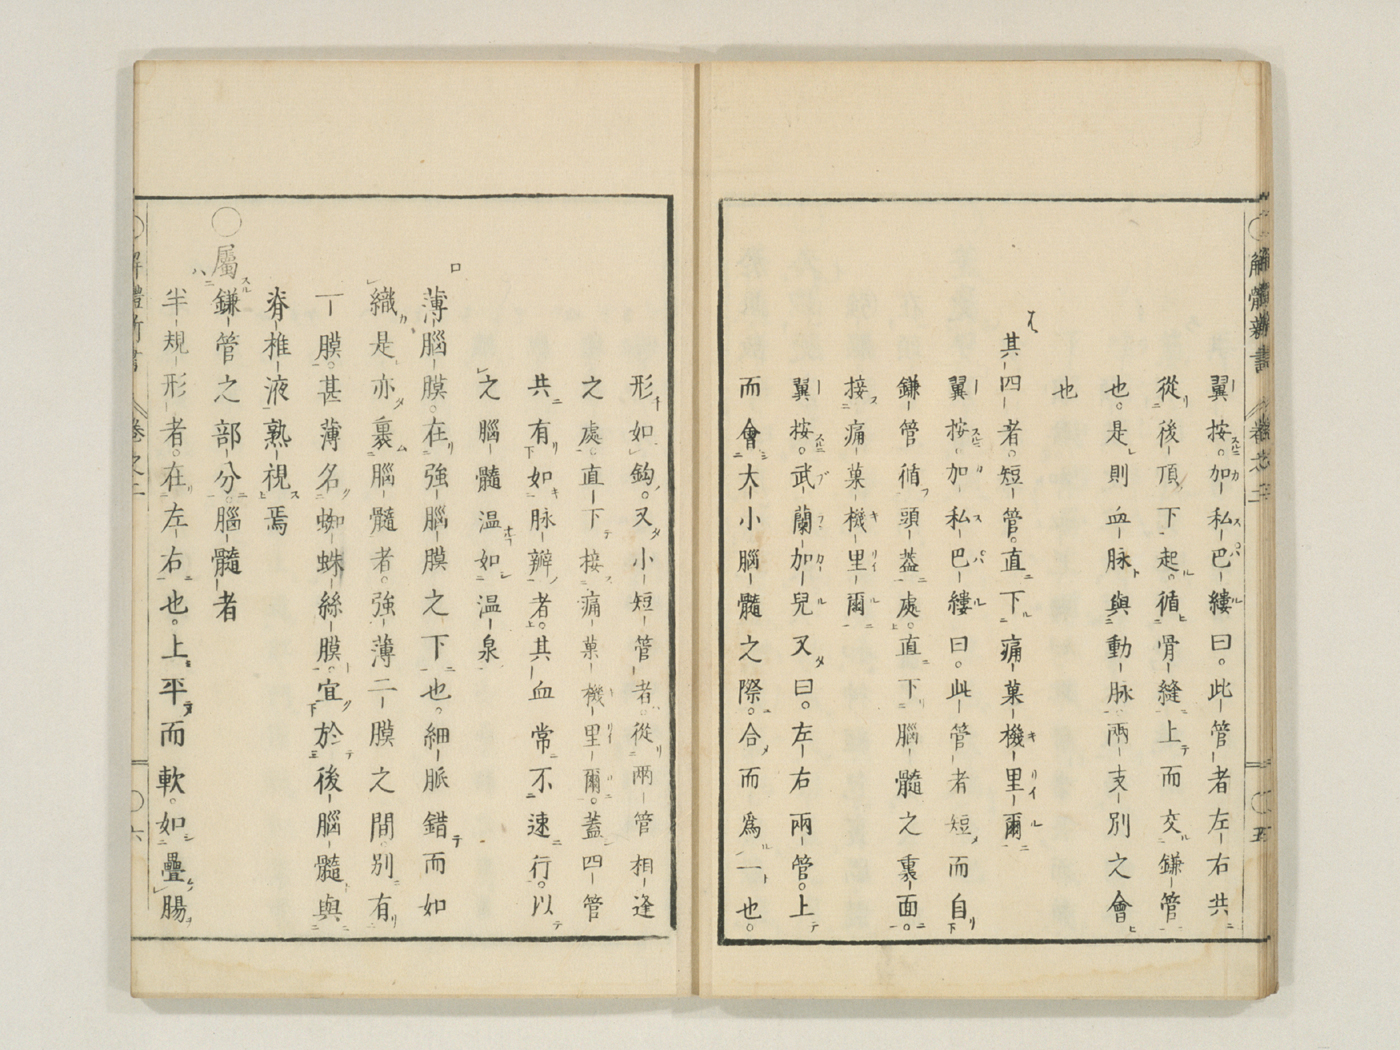 解體新書 卷之二 五
翼按。加私巴縷曰。此管者左右共
從後頂下起。循骨縫上而交鎌管
也。是則血脉與動脉。兩支別之會
也
其四者。短管。直下痛菓機里爾
翼按。加私巴縷曰。此管者短而自
鎌管循頭蓋處。直下腦髓之裏面。
接痛菓機里爾
翼按。武蘭加兒又曰。左右兩管。上
而會大小腦髓之際。合而爲一也。
形如鈎。又小短管者。從兩管相逢
之處。直下接痛菓機里爾。蓋四管
共有如脉瓣者。其血常不速行。以
之腦髓温如温泉
ロ 薄腦膜。在強腦膜之下也。細脈錯而如
織是亦裹腦髓者。強薄二膜之間。別有
一膜。甚薄名蜘蛛絲膜。宜於後腦髓與
脊椎液熟視焉
○屬鎌管之部分。腦髓者
ハ 半規形者。在左右也。上平而軟。如疊腸
解體新書 卷之二 六